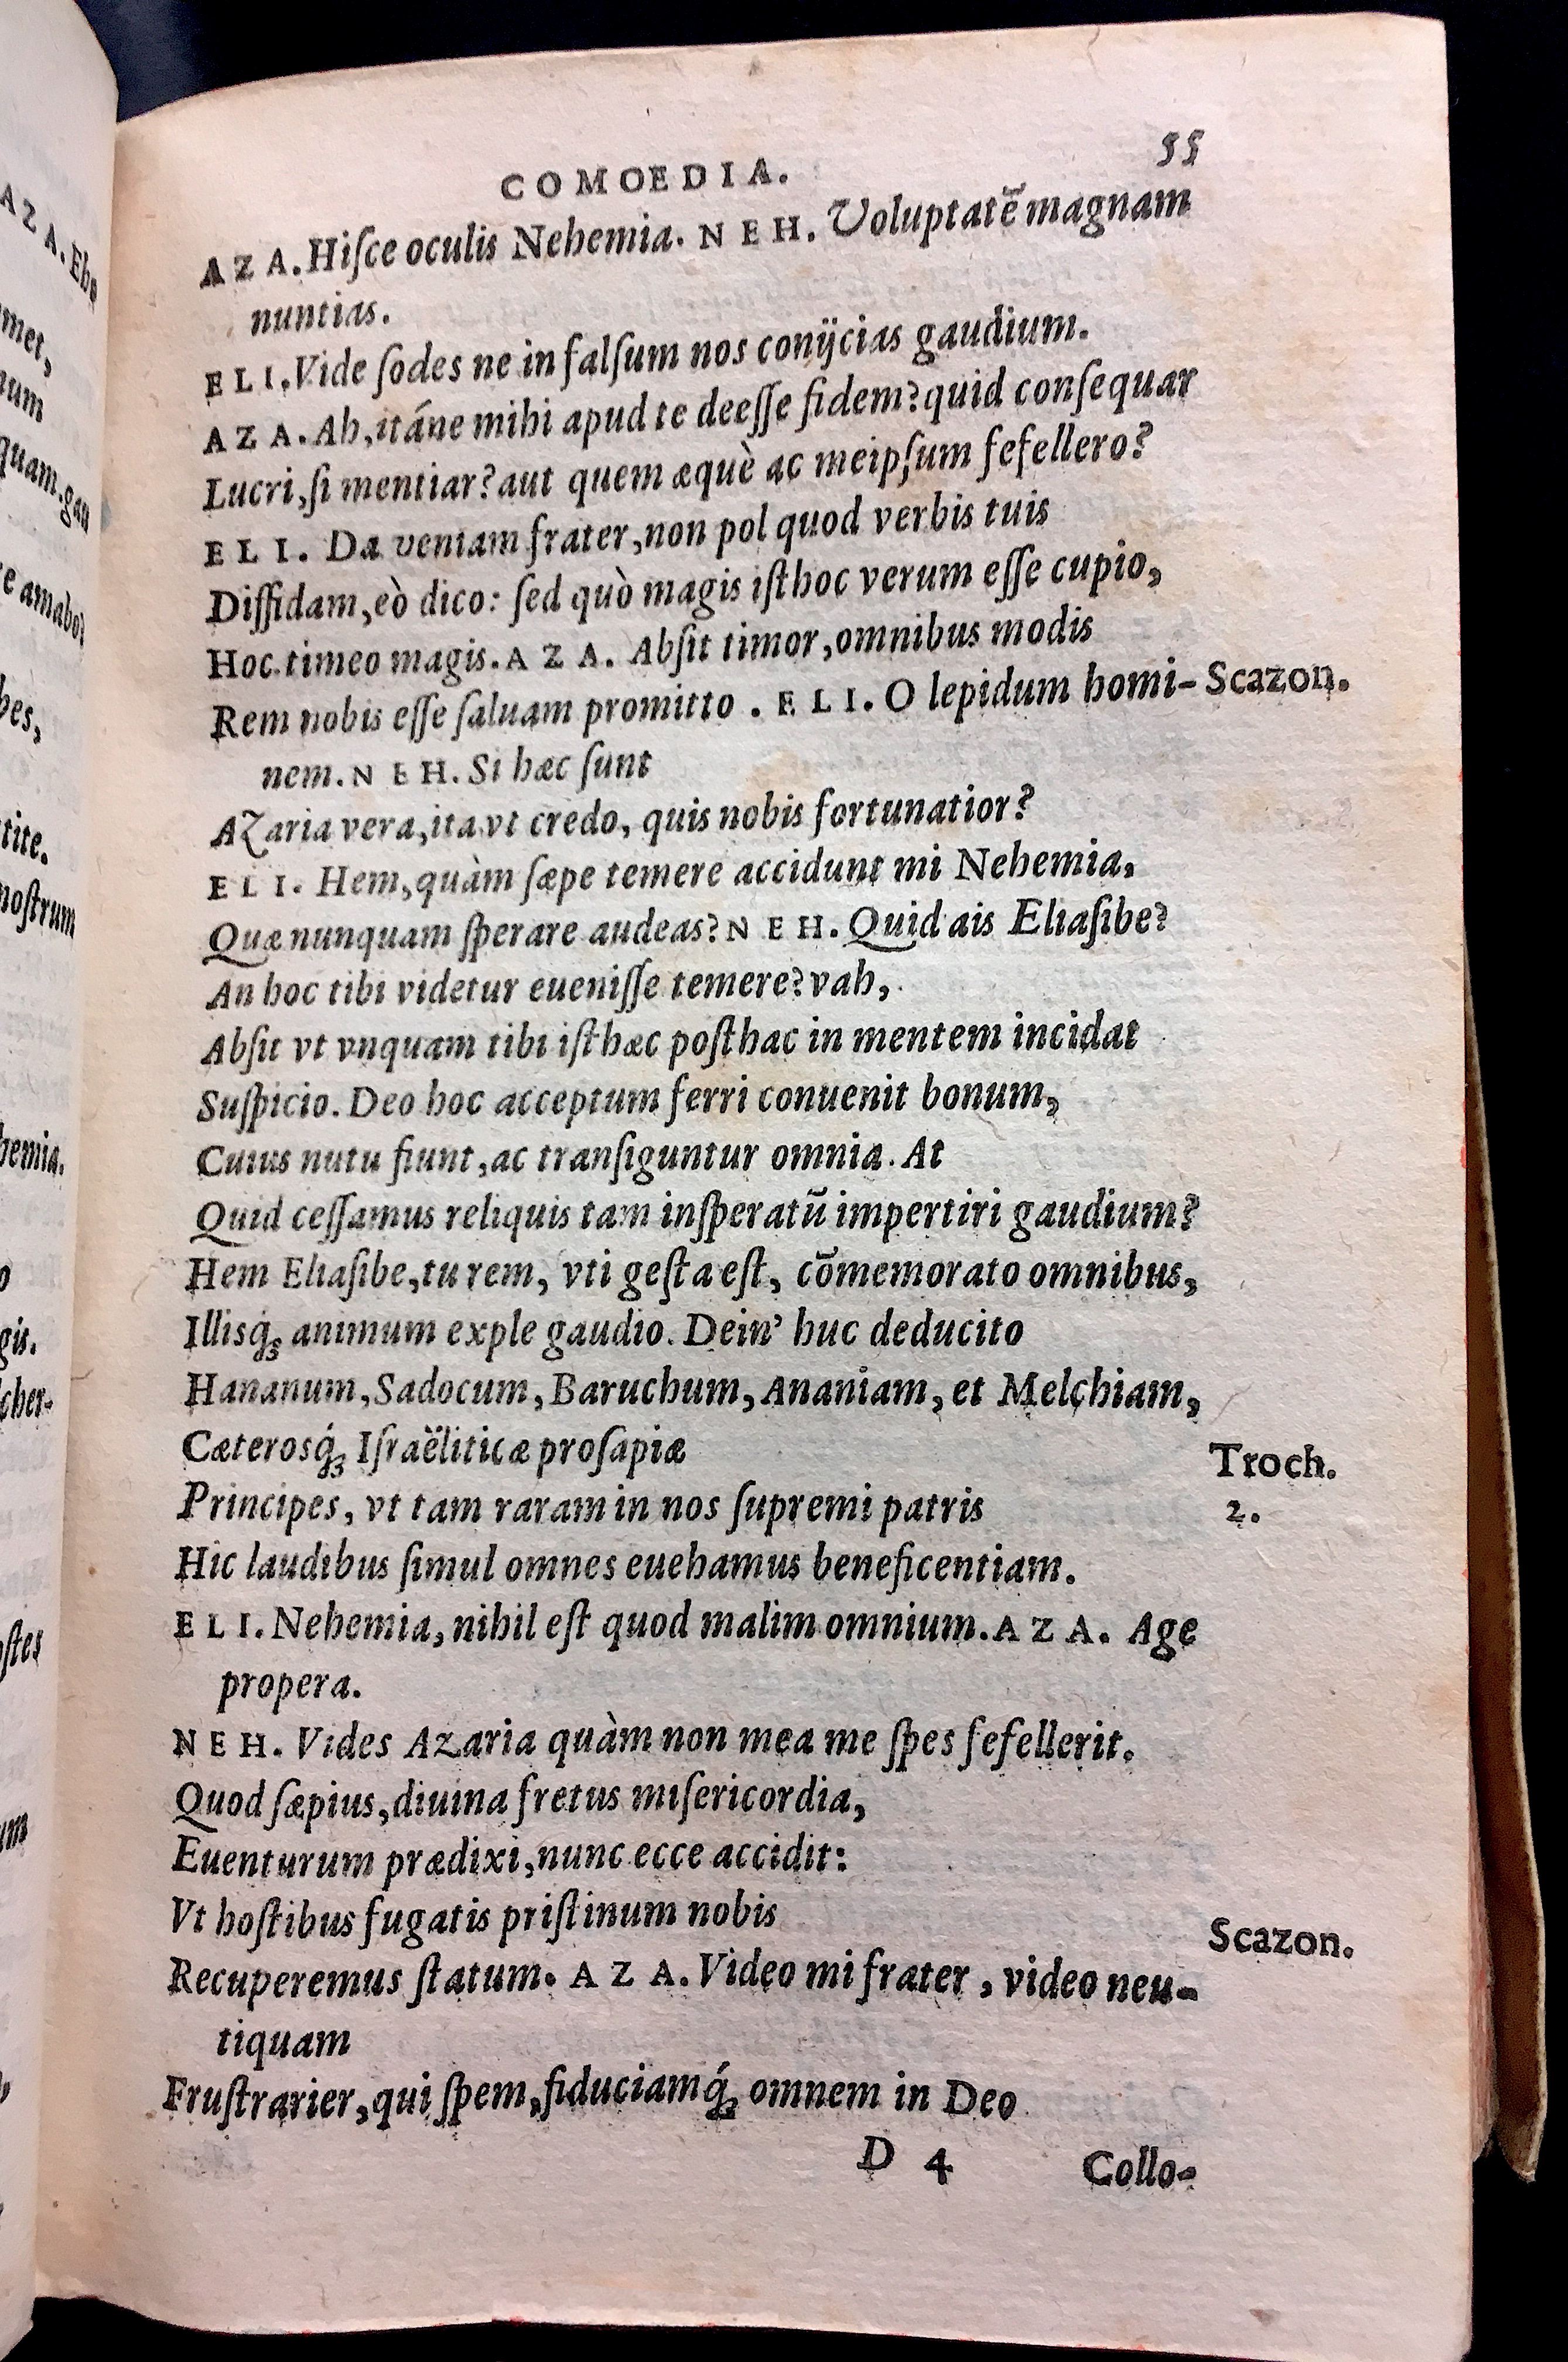 COMOEDIA. 55
AZA. Hiſce oculis Nehemia. NEH. Voluptatē magnam
nuntias.
ELI. Vide ſodes ne in falſum nos conijcias gaudium.
AZA. Ah, itáne mihi apud te deeſſe fidem? quid conſequar
Lucri, ſi mentiar? aut quem æquè ac meipſum fefellero?
ELI. Da veniam frater, non pol quod verbis tuis
Diffidam, eò dico: ſed quò magis iſthoc verum eſſe cupio,
Hoc timeo magis. AZA. Abſit timor, omnibus modis
Rem nobis eſſe ſaluam promitto. ELI. O lepidum homi- Scazon.
nem. NEH. Si hæc ſunt
Azaria vera, ita vt credo, quis nobis fortunatior?
ELI. Hem, quàm ſæpe temere accidunt mi Nehemia,
Quæ nunquam ſperare audeas? NEH. Quid ais Eliaſibe?
An hoc tibi videtur eueniſſe temere? vah,
Abſit vt vnquam tibi iſthæc poſthac in mentem incidat
Suſpicio. Deo hoc acceptum ferri conuenit bonum,
Cuius nutu fiunt, ac tranſiguntur omnia. At
Quid ceſſamus reliquis tam inſperatū impertiri gaudium?
Hem Eliaſibe, tu rem, vti geſta eſt, cōmemorato omnibus,
Illisq́; animum exple gaudio. Dein' huc deducito
Hananum, Sadocum, Baruchum, Ananiam, et Melchiam,
Cæterosq́; Iſraëliticæ proſapiæ Troch.
Principes, vt tam raram in nos ſupremi patris 2.
Hic laudibus ſimul omnes euehamus beneficentiam.
ELI. Nehemia, nihil eſt quod malim omnium. AZA. Age
propera.
NEH. Vides Azaria quàm non mea me ſpes fefellerit.
Quod ſæpius, diuina fretus miſericordia,
Euenturum prædixi, nunc ecce accidit:
Vt hoſtibus fugatis priſtinum nobis Scazon.
Recuperemus ſtatum. AZA. Video mi frater, video neu-
tiquam
Fruſtrarier, qui ſpem, fiduciamq́; omnem in Deo
D 4 Collo-